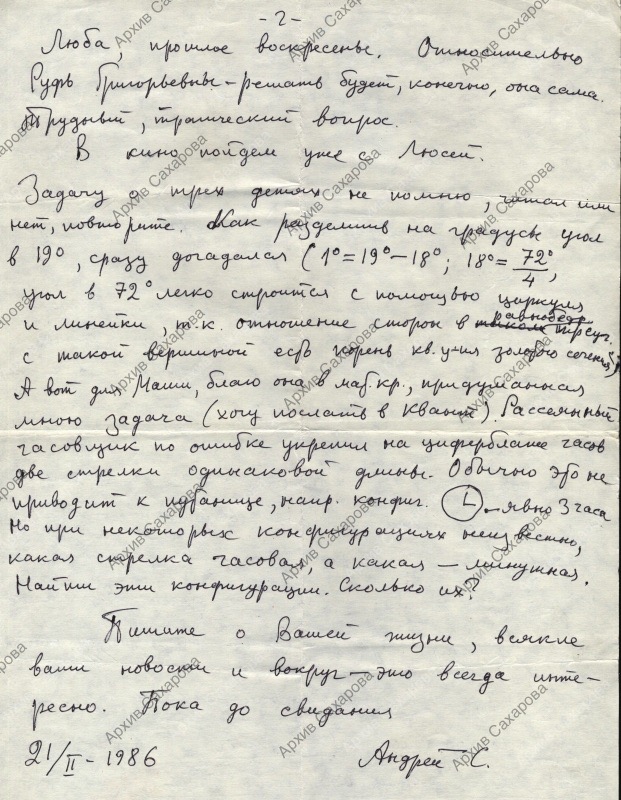 - 2 -
Люба, прошлое воскресенье. Относительно
Руфь Григорьевны – решать будет, конечно, она сама.
Трудный, трагический вопрос.
В кино пойдем уже с Люсей.
Задачу о трех детях не помню, читал или
нет, повторите. Как разделить на градусы угол
в 19°, сразу догадался (1°=19°–18°; 18°=72°/4,
угол в 72° легко строится с помощью циркуля
и линейки, т.к. отношение сторон в равнобедр. треуг.
с такой вершиной есть корень кв. ур-ия золотого сечения);
А вот для Маши, благо она в маб. кр., придуманная
мною задача (хочу послать в Квант). Рассеянный
часовщик по ошибке укрепил на циферблате часов
две стрелки одинаковой длины. Обычно это не
приводит к путанице, напр. конфиг. – явно 3 часа
Но при некоторых конфигурациях неизвестно,
какая стрелка часовая, а какая – минутная.
Найти эти конфигурации. Сколько их?
Пишите о Вашей жизни, всякие
ваши новости и вокруг – это всегда инте-
ресно. Пока до свидания
21/II - 1986 Андрей С.
Архив Сахарова